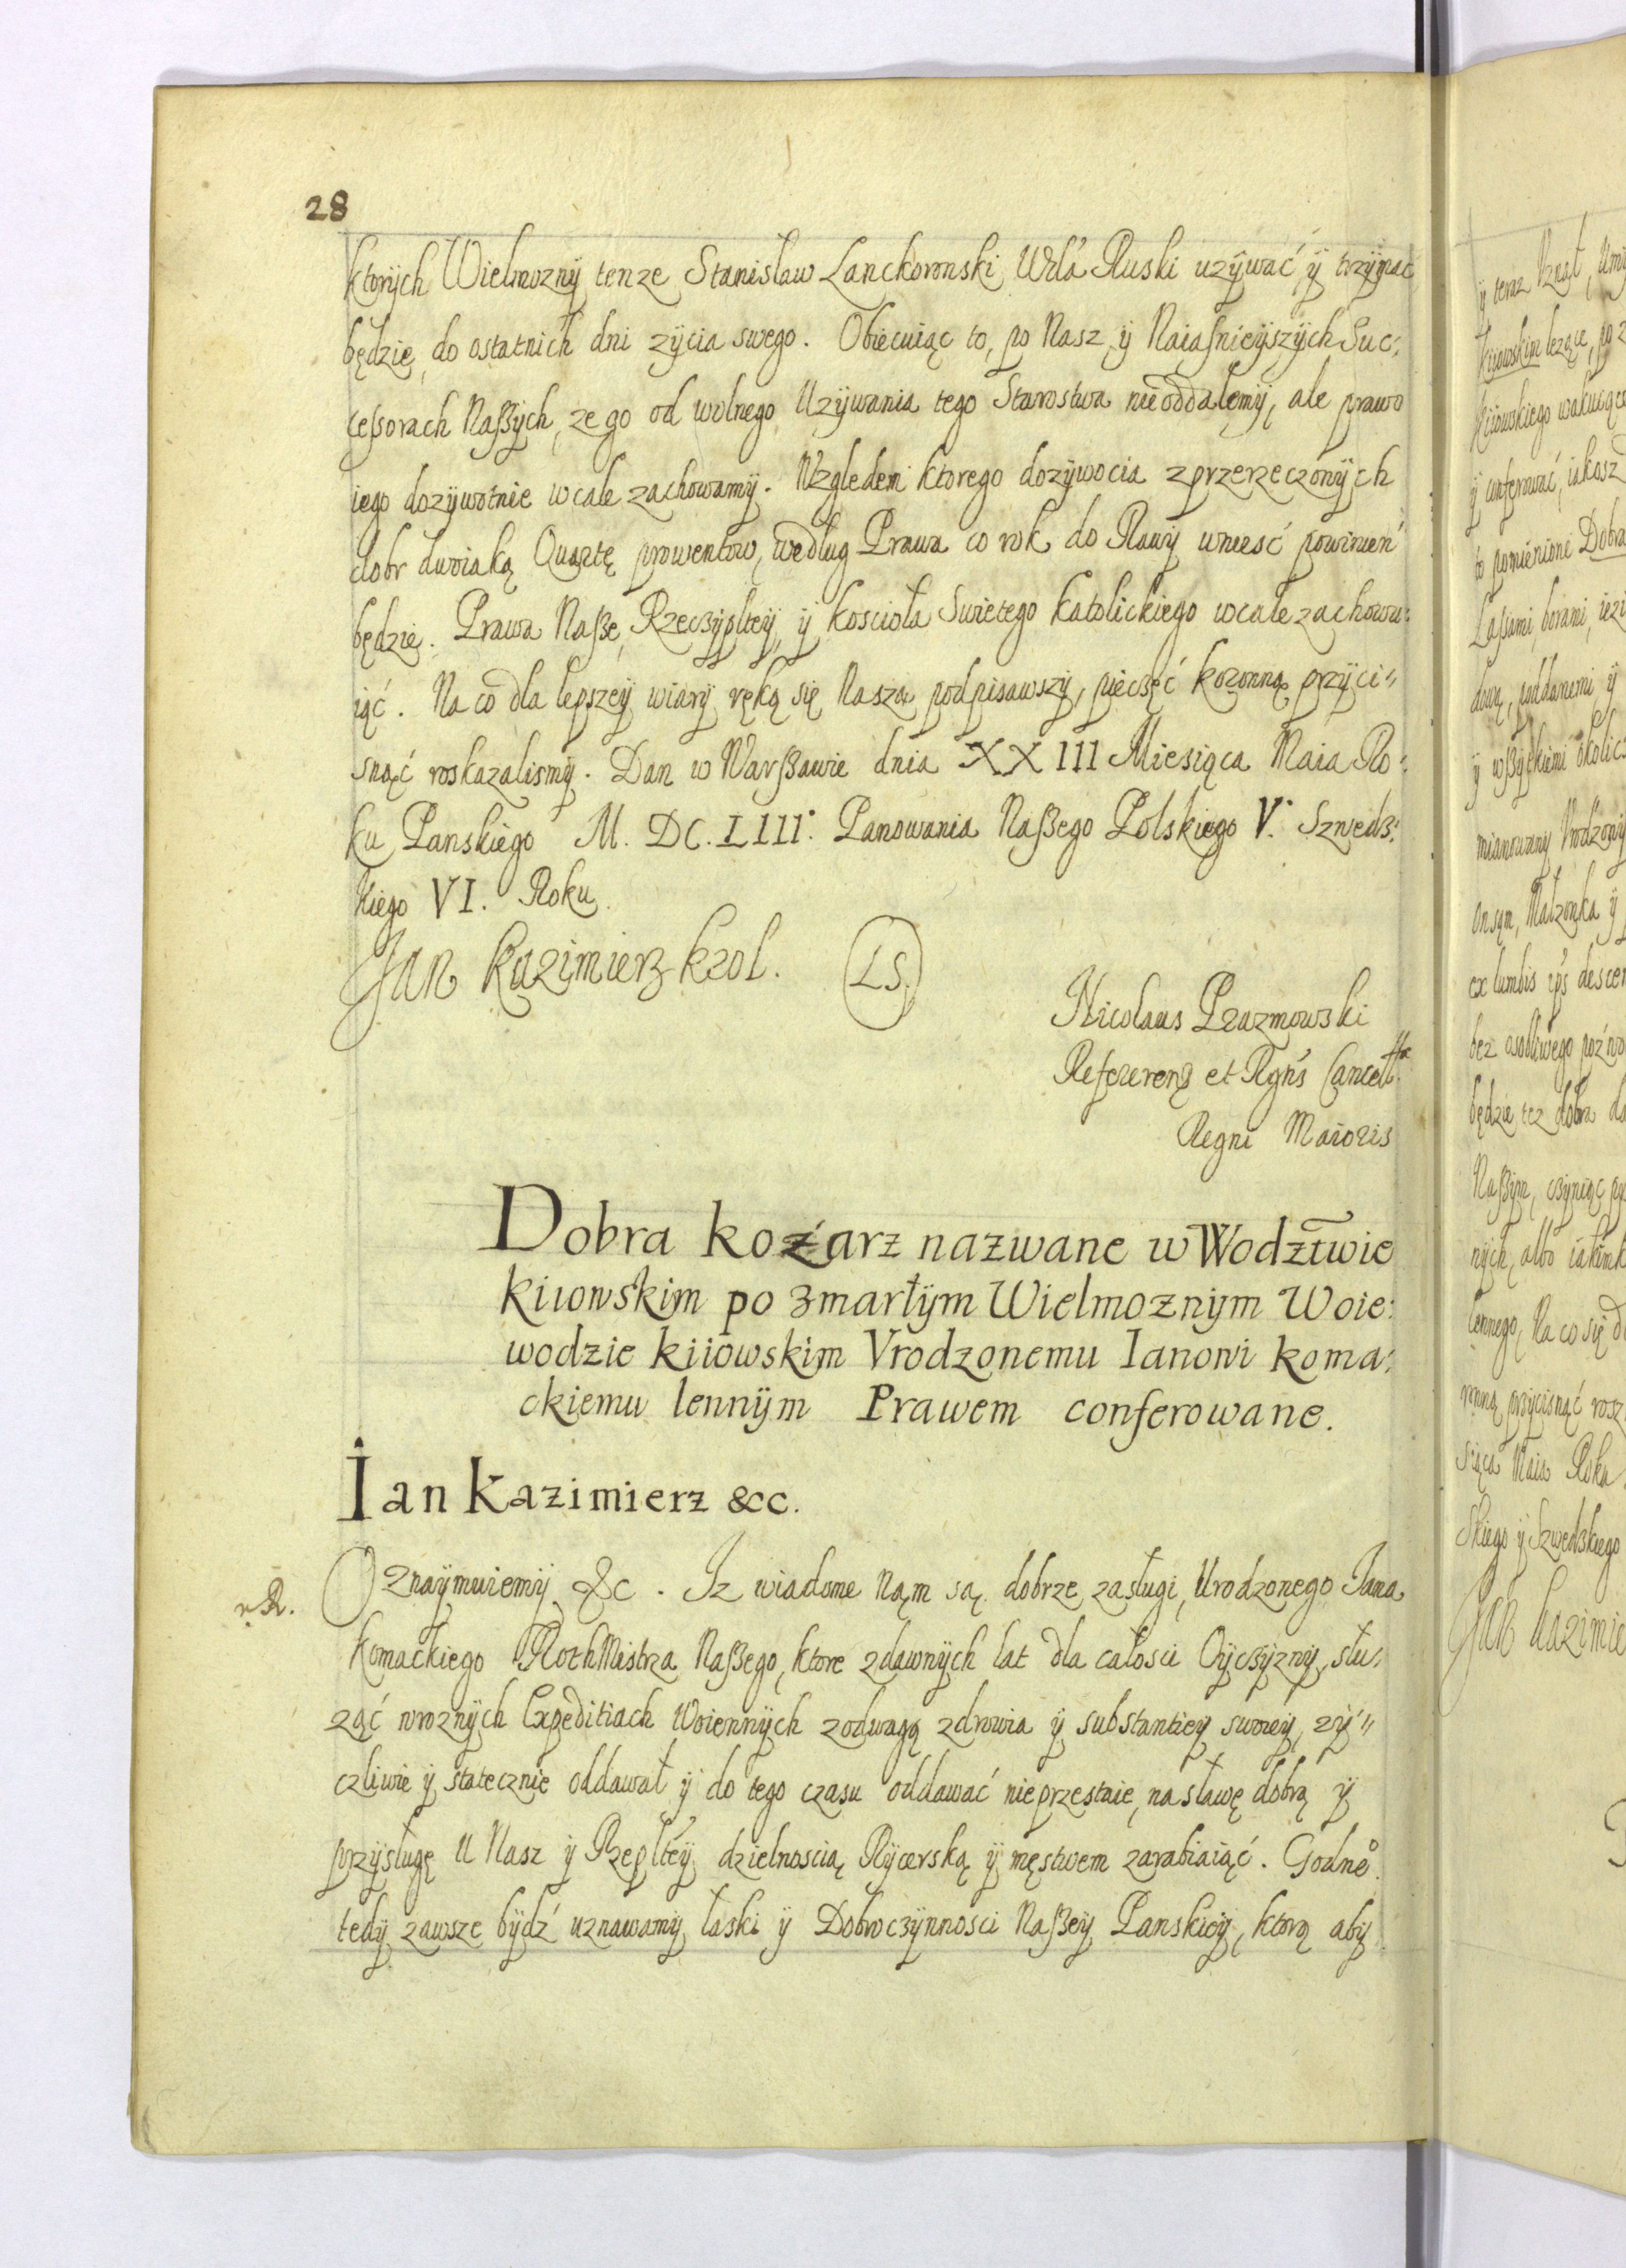 28
ktorÿch Wielmoznÿ tenze Stanisław Lanckoronski Wda Ruski uzÿwać ÿ trzÿmac
będzie do ostatnich dni zÿcia swego. Obiecuiąc to, po Nasz ÿ Naiaſnieÿszÿch Suc:
ceſsorach Naßÿch, ze go od wolnego Uzÿwania tego Starostwa nieoddalęmÿ, ale prawo
iego dozÿwotnie wcale zachowamÿ. Względem ktorego dozÿwocia zprzerzeczonÿch
dobr dwoiaką Quartę prowentow, według Prawa co rok do Rawÿ wnieść powinień
będzie. Prawa Naße, Rzeczÿpltey, ÿ koscioła Swietego katolickiego wcale zachowu:
iąć. Na co dla lepszeÿ wiarÿ ręką się Naszą podpisawszÿ, pieczęć koronną przÿci"
snąć roskazalismÿ. Dan w Warßawie dnia XXIII Miesiąca Maia Ro:
ku Panskiego M. DC. LIII. Panowania Naßego Polskiego V. Szweds:
kiego VI. Roku.
Jan kazimierz krol. LS.
Nicolaus Prazmowski
Referend et Rgńs Cancellr̃a
Regni Maioris
Dobra koźarz nazwane w Wodztwie
kiiowskim po zmarłÿm Wielmoznÿm Woie:
wodzie kiiowskim Vrodzonemu Ianowi koma:
ckiemu lennÿm Prawem conferowane.
Ian kazimierz &cc.
R. Oznaÿmuiemÿ &c. Iz wiadome Nąm są dobrze zasługi, Urodzonego Jana
komackiego RothMistrza Naßego, ktore zdawnÿch lat dla całosci Oÿczÿznÿ, słu:
ząć wroznÿch Expeditiach Woiennÿch zodwagą zdrowia ÿ substantieÿ swoieÿ, zÿ"
czliwie ÿ statecznie oddawał ÿ do tego czasu oddawać nieprzestaie, na sławę dobrą ÿ
przÿsługę U Nasz ÿ Rzepltey dzielnoscią Rÿcerską ÿ męstwem zarabiaiąć. Godne͛
tedÿ zawsze bÿdź uznawamÿ łaski ÿ Dobroczÿnnosci Naßeÿ Panskieÿ, ktorą abÿ
ÿ teraz
kiiowskim lezące, po z
kiiowskiego wakuiące
ÿ conferować, iakosz
to pomienione Dobra
Laſsami, borami, iezi
dową, poddanemi, ÿ
ÿ wßÿtkiemi okolic
mianowanÿ Vrodzonÿ
on sąm, Małzonka ÿ
ex lumbis ip̃s descen
będzie tez dobra do
Naßÿm, czÿniąc
nÿch, albo iakimk
lennego, Na co się d
ronną przÿcisnąć rosz
siąca Maia Roku
skiego ÿ Szwedskiego
Jan kazimie